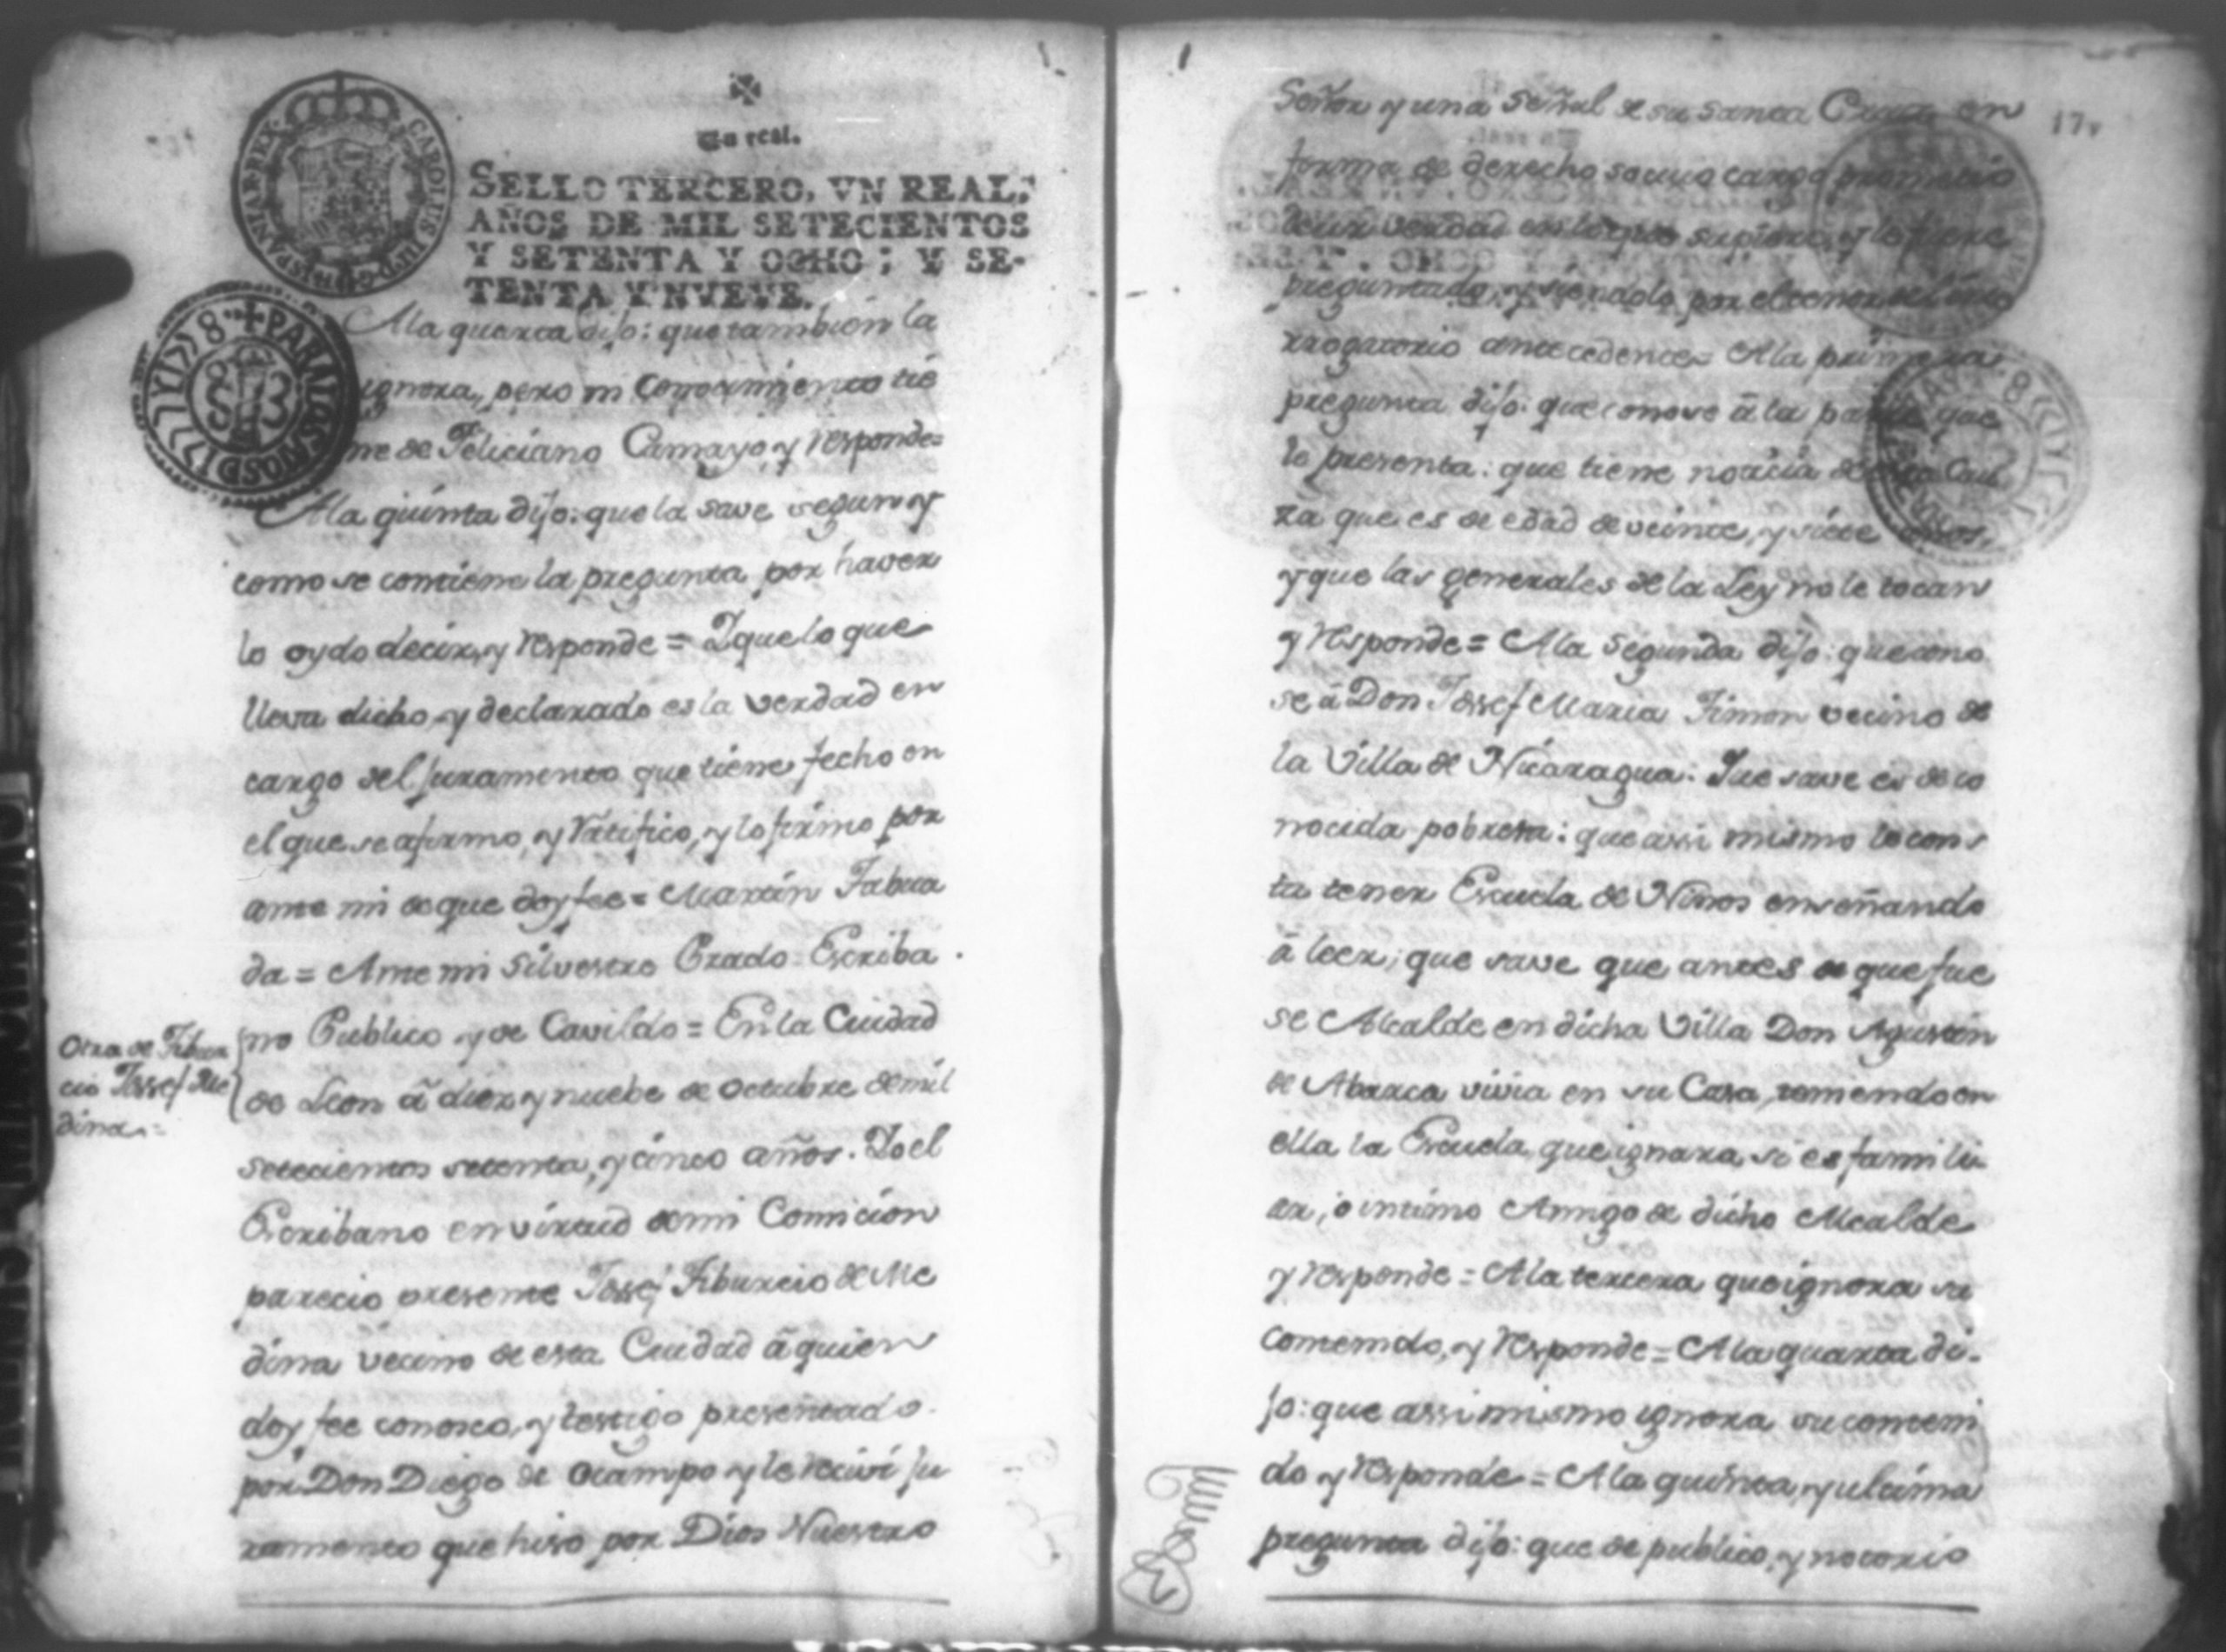 Un real.
SELLO TERCERO, VN REAL,
AÑOS DE MIL SETECIENTOS
Y SETENTA Y OCHO; Y SE-
TENTA Y NVEVE.
CAROLUS III D G HISPANIAR REX
PARA LOS AÑOS D 1777 Y 1778
A la quarta dijo: que tambien la
ignora, pero ni conocimiento tie
ne de Feliciano Camayo, y responde=
A la quinta dijo: que la save segun y
como se contiene la pregunta por haver
lo oydo decir, y responde = Y que lo que
lleva dicho, y declarado es la verdad en
cargo del juramento que tiene fecho en
el que se afirmo, y ratifico, y lo firmo por
ante mi de que doy fee = Martin Tabua
da = Ante mi Silvestre Prado = Escriba
no Publico y de Cavildo = En la Ciudad
de Leon â diez y nuebe de Octubre de mil
setecientos setenta, y cinco años. Yo el
Escribano en virtud de mi Comicion
parecio presente Jossef Tiburcio de Me
dina vecino de esta Ciudad â quien
doy fee conosco, y testigo presentado
por Don Diego de Ocampo y le recivi ju
ramento que hiso por Dios Nuestro
Otra de Tibur
cio Jossef Me
dina =
17,
Señor y una Señal de su Santa Cruz en
forma de derecho so cuio cargo prometio
decir verdad en lo que supiere, y le fuere
preguntado, y siendolo por el tenor del inte
rrogatorio antecedente = A la primera
pregunta dijo: que conose â la parte que
le presenta: que tiene noticia de esta Cau
za que es de edad de veinte, y siete años,
y que las generales de la Ley no le tocan
y responde = A la Segunda dijo: que cono
se â Don Jossef Maria Timon vecino de
la Villa de Nicaragua: Que save es de co
nocida pobresa: que assi mismo le cons
ta tener Escuela de Niños enseñando
â leer; que save que antes de que fue
se Alcalde en dicha Villa Don Agustin
de Abarca vivia en su Casa, teniendo en
ella la Escuela, que ignora, si es famili
ar, o intimo Amigo de dicho Alcalde
y responde = A la tercera que ignora su
contenido, y responde = A la quarta di-
jo: que assi mismo ignora su conteni
do y responde = A la quinta, y ultima
pregunta dijo: que de publico, y notorio